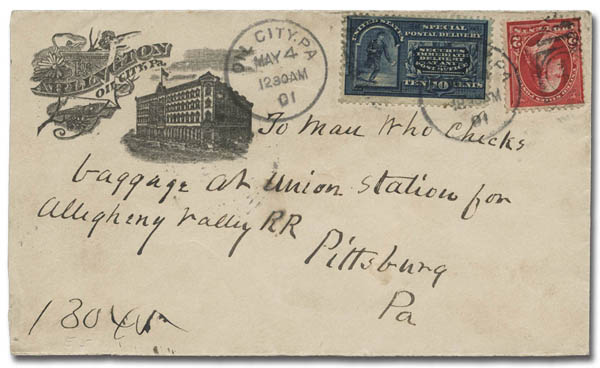 ARLINGTON
OIL CITY, Pa.
OIL CITY, PA
MAY 4
1230AM
01
UNITED STATES
SPECIAL POSTAL DELIVERY
SECURES IMMEDIATE DELIVERY
TEN 10 CENTS
To Man Who Checks
baggage at Union Station for
Allegheny Valley RR
Pittsburg
Pa